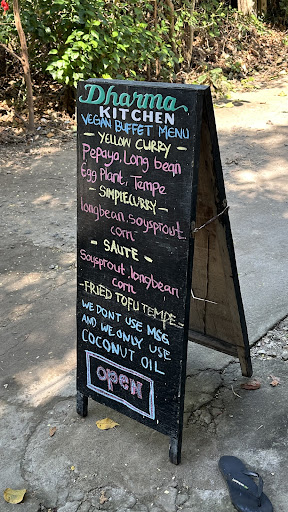 Dharma
KITCHEN
VEGAN BUFFET MENU
- YELLOW CURRY
Pepaya, Long bean
Egg Plant, Tempe
- SIMPLE CURRY -
longbean, soysprout
corn
- SAUTE -
soysprout, longbean
corn
- FRIED TOFU TEMPE -
WE DONT USE MSG
AND WE ONLY USE
COCONUT OIL
open